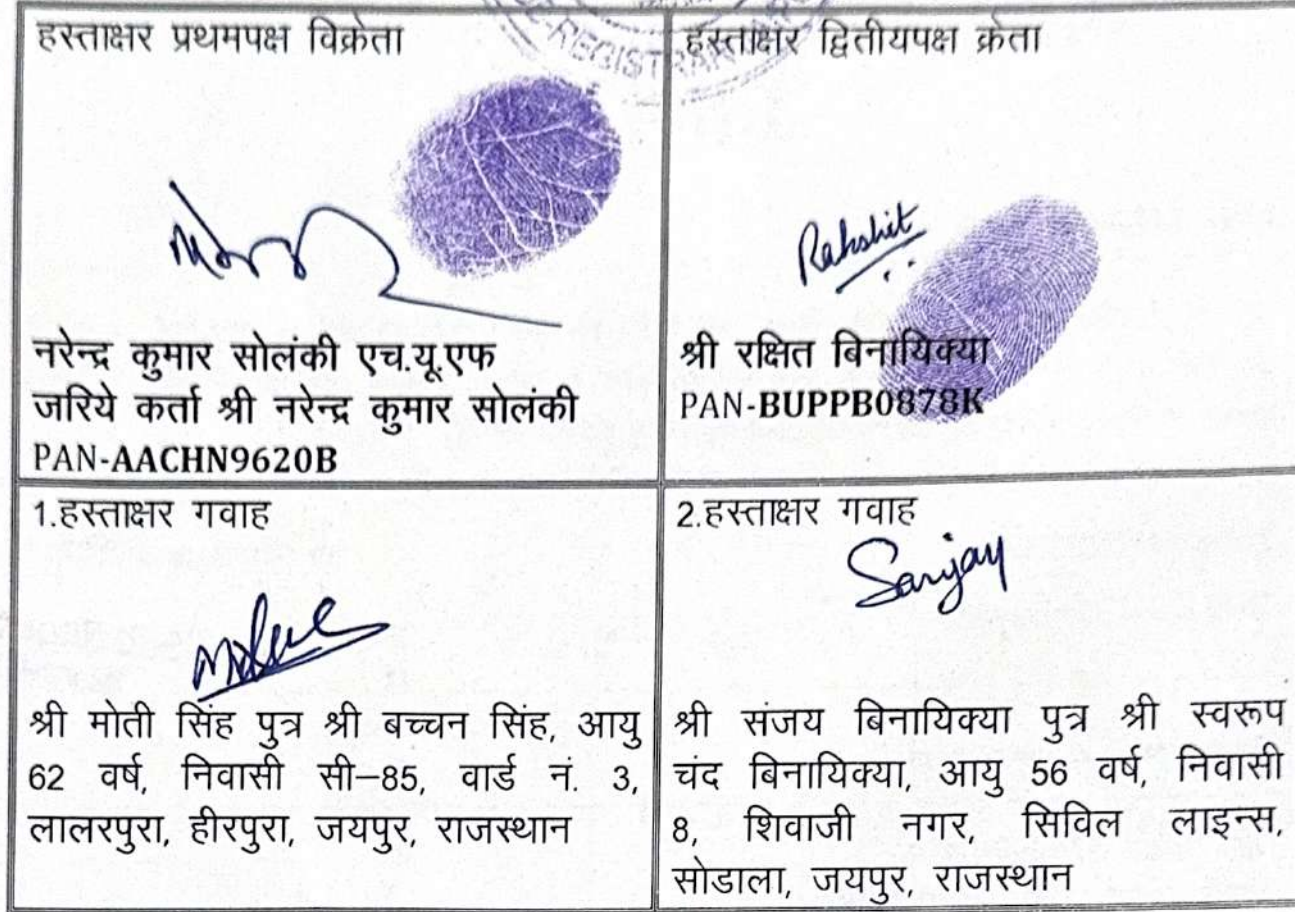 हस्ताक्षर प्रथमपक्ष विक्रेता
नरेन्द्र कुमार सोलंकी एच.यू.एफ
जरिये कर्ता श्री नरेन्द्र कुमार सोलंकी
PAN-AACHN9620B
हस्ताक्षर द्वितीयपक्ष क्रेता
Rakshit
श्री रक्षित बिनायिक्या
PAN-BUPPB0878K
1.हस्ताक्षर गवाह
श्री मोती सिंह पुत्र श्री बच्चन सिंह, आयु
62 वर्ष, निवासी सी–85, वार्ड नं. 3,
लालरपुरा, हीरपुरा, जयपुर, राजस्थान
2.हस्ताक्षर गवाह
Sanjay
श्री संजय बिनायिक्या पुत्र श्री स्वरूप
चंद बिनायिक्या, आयु 56 वर्ष, निवासी
8, शिवाजी नगर, सिविल लाइन्स,
सोडाला, जयपुर, राजस्थान